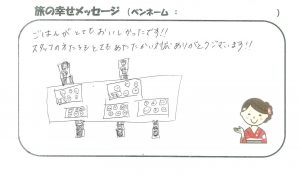 旅の幸せメッセージ（ペンネーム：　　　　）
ごはんがとてもおいしかったです!!
スタッフの方たちもとてもあたたかい対応ありがとうございます!!